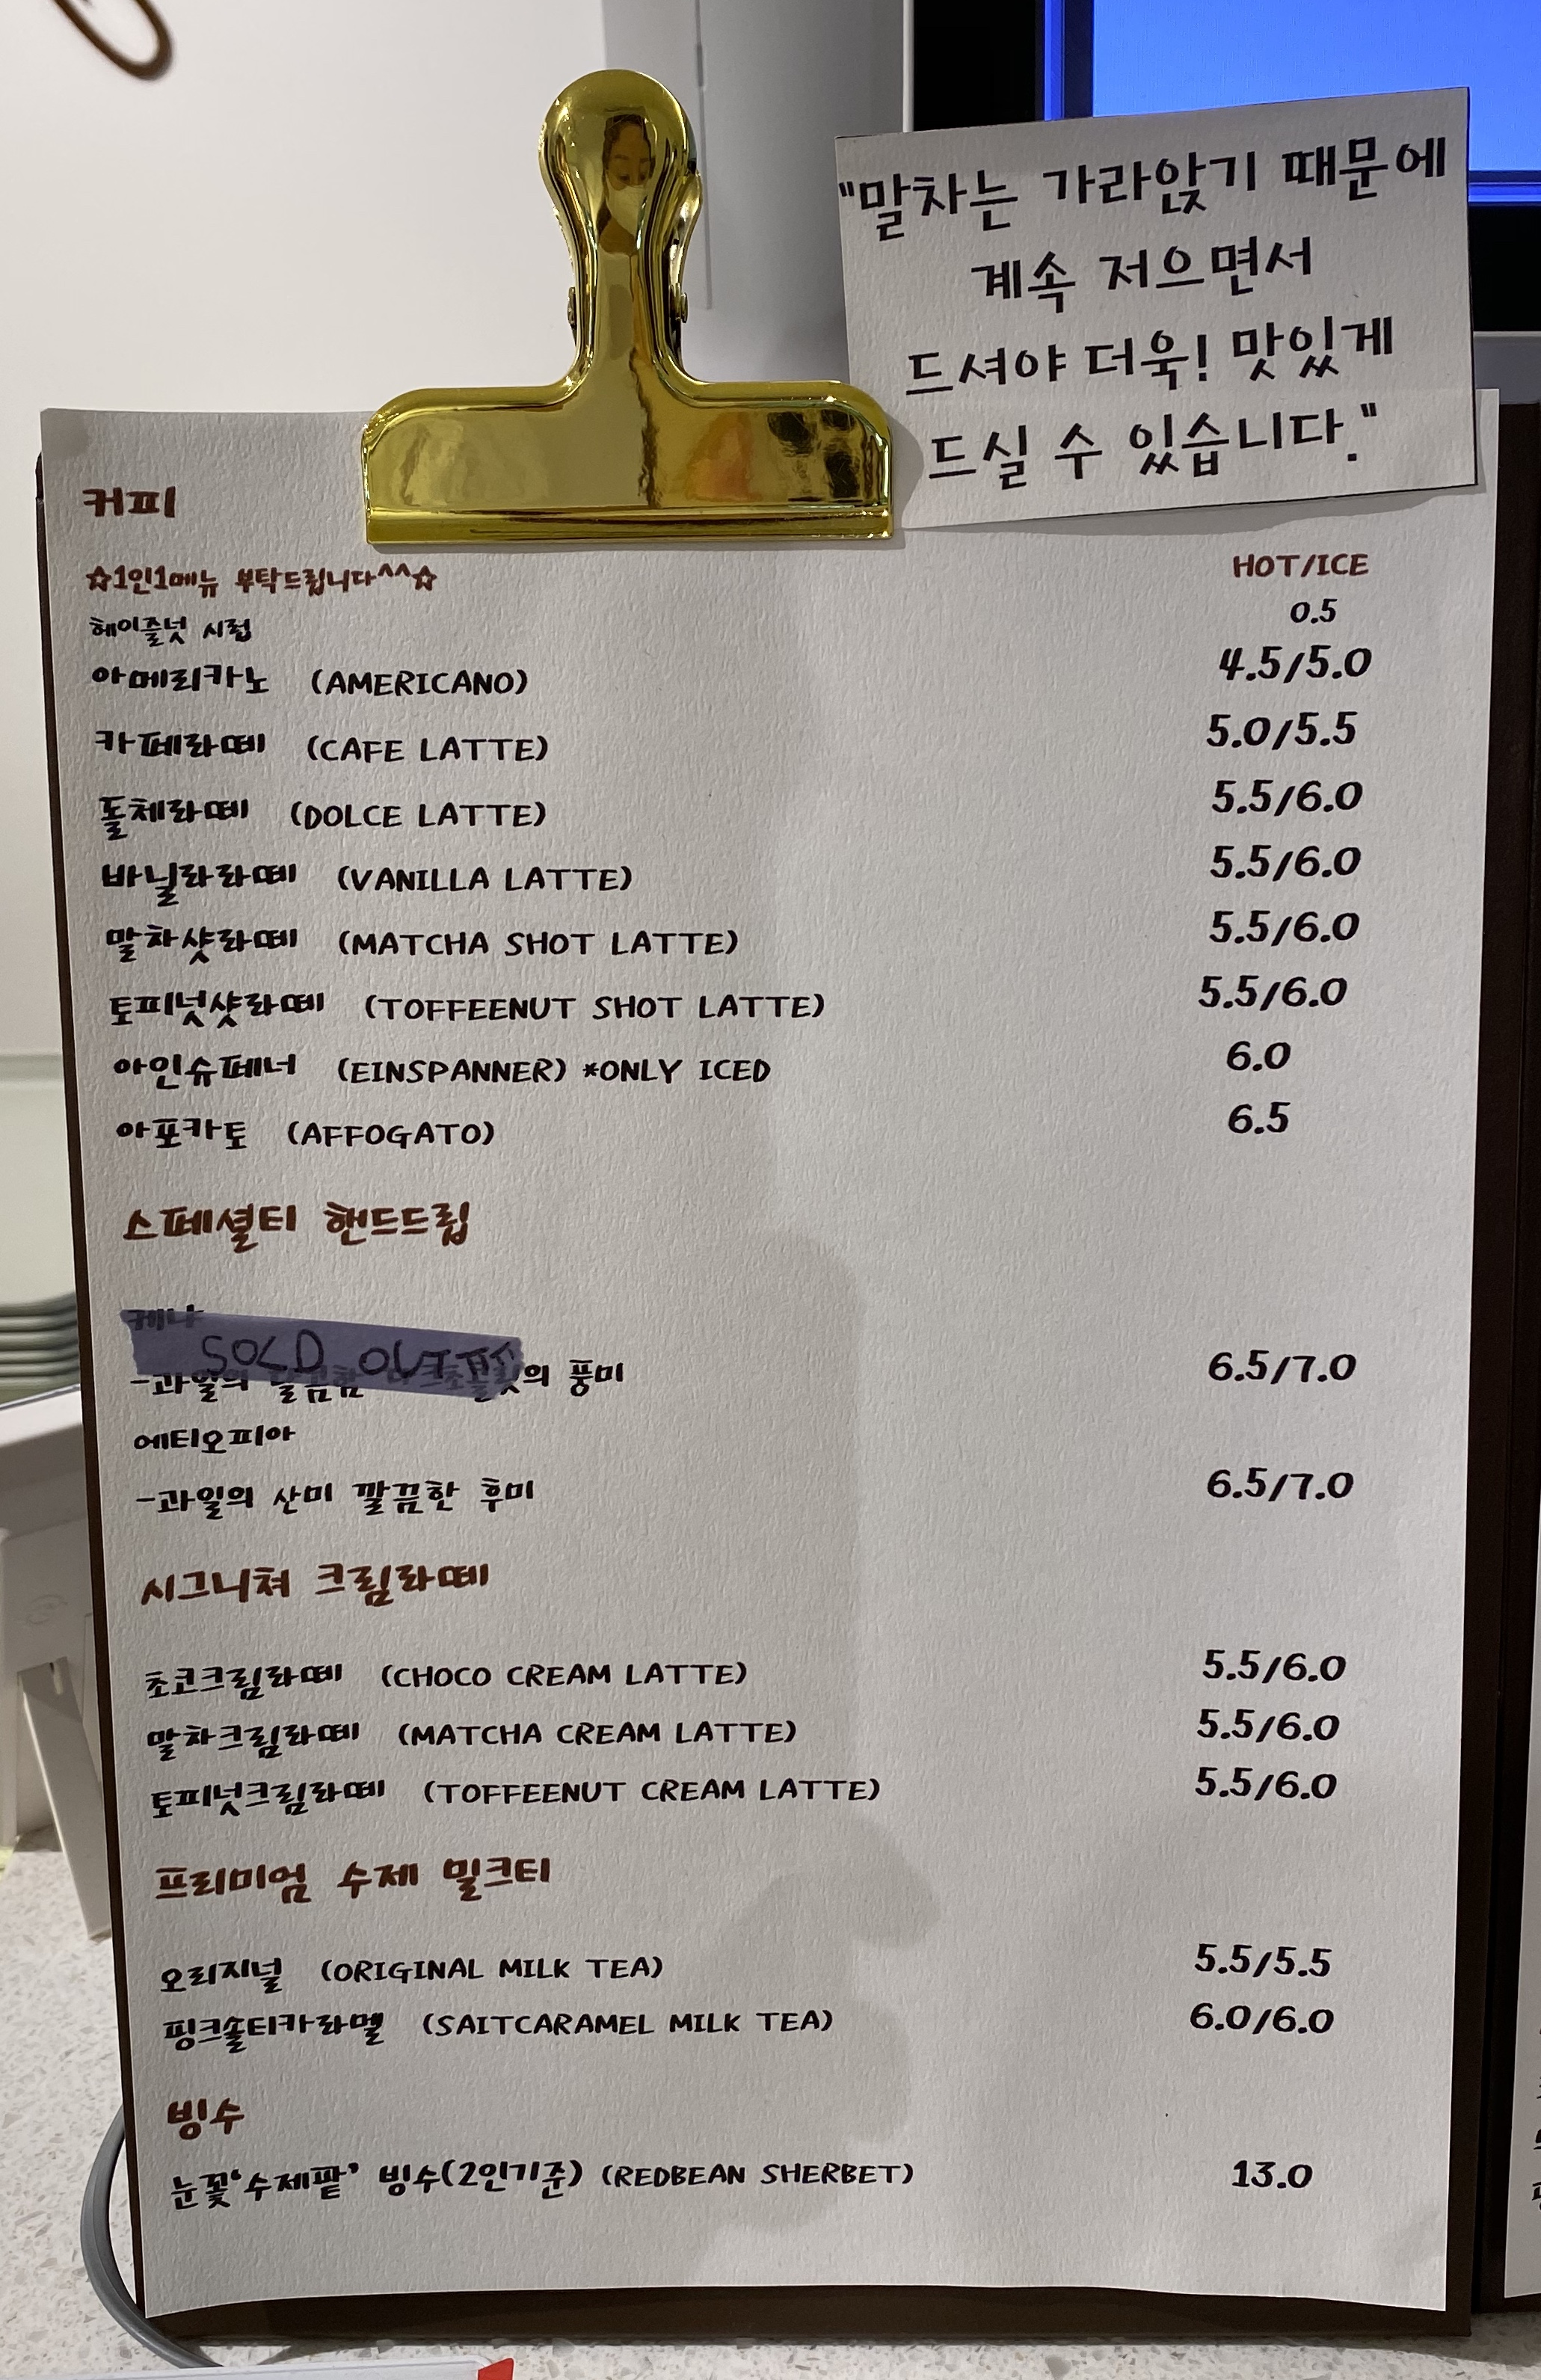 "말차는 가라앉기 때문에
계속 저으면서
드셔야 더욱! 맛있게
드실 수 있습니다."
커피
☆1인1메뉴 부탁드립니다^^☆ HOT/ICE
헤이즐넛 시럽 0.5
아메리카노 (AMERICANO) 4.5/5.0
카페라떼 (CAFE LATTE) 5.0/5.5
돌체라떼 (DOLCE LATTE) 5.5/6.0
바닐라라떼 (VANILLA LATTE) 5.5/6.0
말차샷라떼 (MATCHA SHOT LATTE) 5.5/6.0
토피넛샷라떼 (TOFFEENUT SHOT LATTE) 5.5/6.0
아인슈페너 (EINSPANNER) *ONLY ICED 6.0
아포카토 (AFFOGATO) 6.5
스페셜티 핸드드립
케냐
SOLD OUT
-과일의 달콤함 다크초콜릿의 풍미 6.5/7.0
에티오피아
-과일의 산미 깔끔한 후미 6.5/7.0
시그니쳐 크림라떼
초코크림라떼 (CHOCO CREAM LATTE) 5.5/6.0
말차크림라떼 (MATCHA CREAM LATTE) 5.5/6.0
토피넛크림라떼 (TOFFEENUT CREAM LATTE) 5.5/6.0
프리미엄 수제 밀크티
오리지널 (ORIGINAL MILK TEA) 5.5/5.5
핑크솔티카라멜 (SAITCARAMEL MILK TEA) 6.0/6.0
빙수
눈꽃'수제팥' 빙수(2인기준) (REDBEAN SHERBET) 13.0